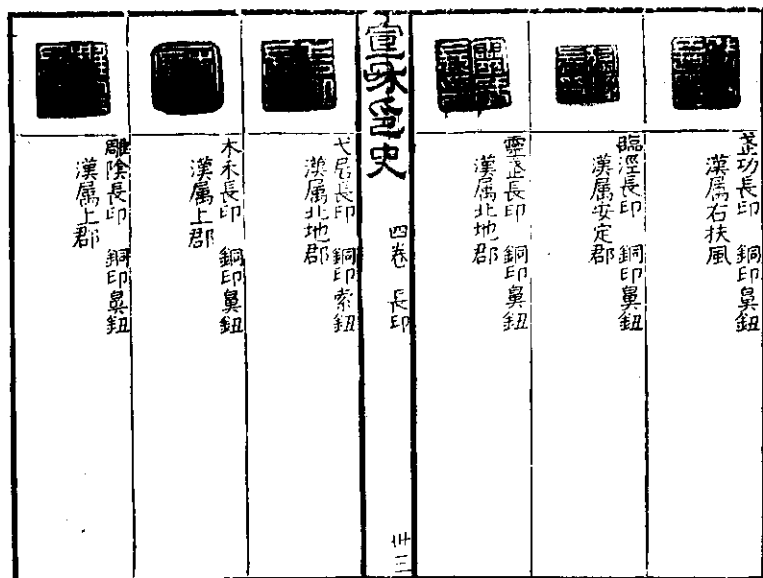 武功長印 銅印鼻鈕
漢属右扶風
臨涇長印 銅印鼻鈕
漢属安定郡
靈武長印 銅印鼻鈕
漢属北地郡
宣和印史 四卷 長印 卅三
弋居長印 銅印索鈕
漢属北地郡
木禾長印 銅印鼻鈕
漢属上郡
雕陰長印 銅印鼻鈕
漢属上郡